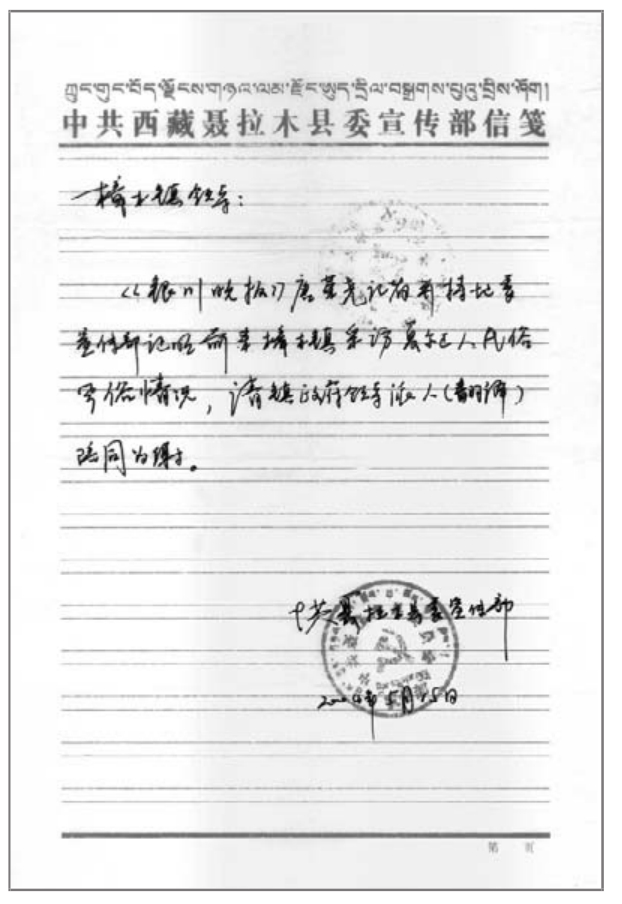 ཀྲུང་གུང་བོད་ལྗོངས་གཉའ་ལམ་རྫོང་ཨུད་དྲིལ་བསྒྲགས་པུའུ་བྲིས་ཤོག།
中共西藏聂拉木县委宣传部信笺
樟木镇领导：
《银川晚报》唐荣尧记者持地委
宣传部记明前来樟木镇采访夏尔巴人民俗
习俗情况，请镇政府领导派人（翻译）
陪同为谢。
中共聂拉木县委宣传部
2004年5月15日
第 页